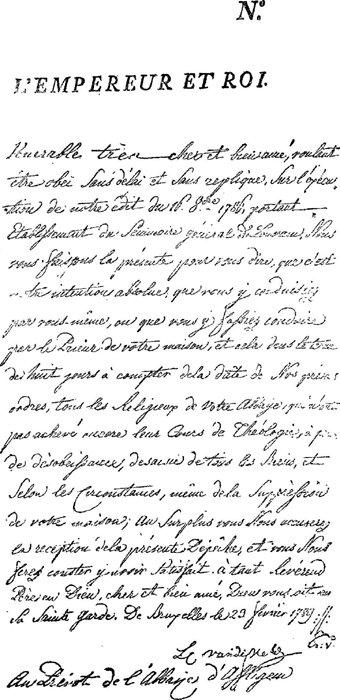 N.º
L'EMPEREUR ET ROI.
Venerable tres cher et bien aimé, voulant
être obei Sans délai et Sans replique, Sur l'éxécu-
tion de notre édit du 16. 8.bre 1786. portant
Etablissement du Séminaire général de Louvain, Nous
vous faisons la présente pour vous dire, que c'est
intention absolue, que vous y conduisiez
par vous même, ou que vous y fassiez conduire
par le Prieur de votre maison, et cela dans le terme
de huit jours à compter de la date de Nos présens
ordres, tous les Religieux de votre Abbaye, qui n'ont
pas achevé encore leur Cours de Théologie, à peine
de désobeissance, de saisie de tous les Biens, et
Selon les Circonstances, même de la Suppression
de votre maison; Au Surplus vous Nous accuserez
la reception de la présente Dépêche, et vous Nous
ferez conster y avoir Satisfait. à tant Révérend
Pere en Dieu, cher et bien aimé, Dieu vous ait en
Sa Sainte garde. De Bruxelles le 23 février 1789
Au Prévot de l'Abbaye d'Afligem